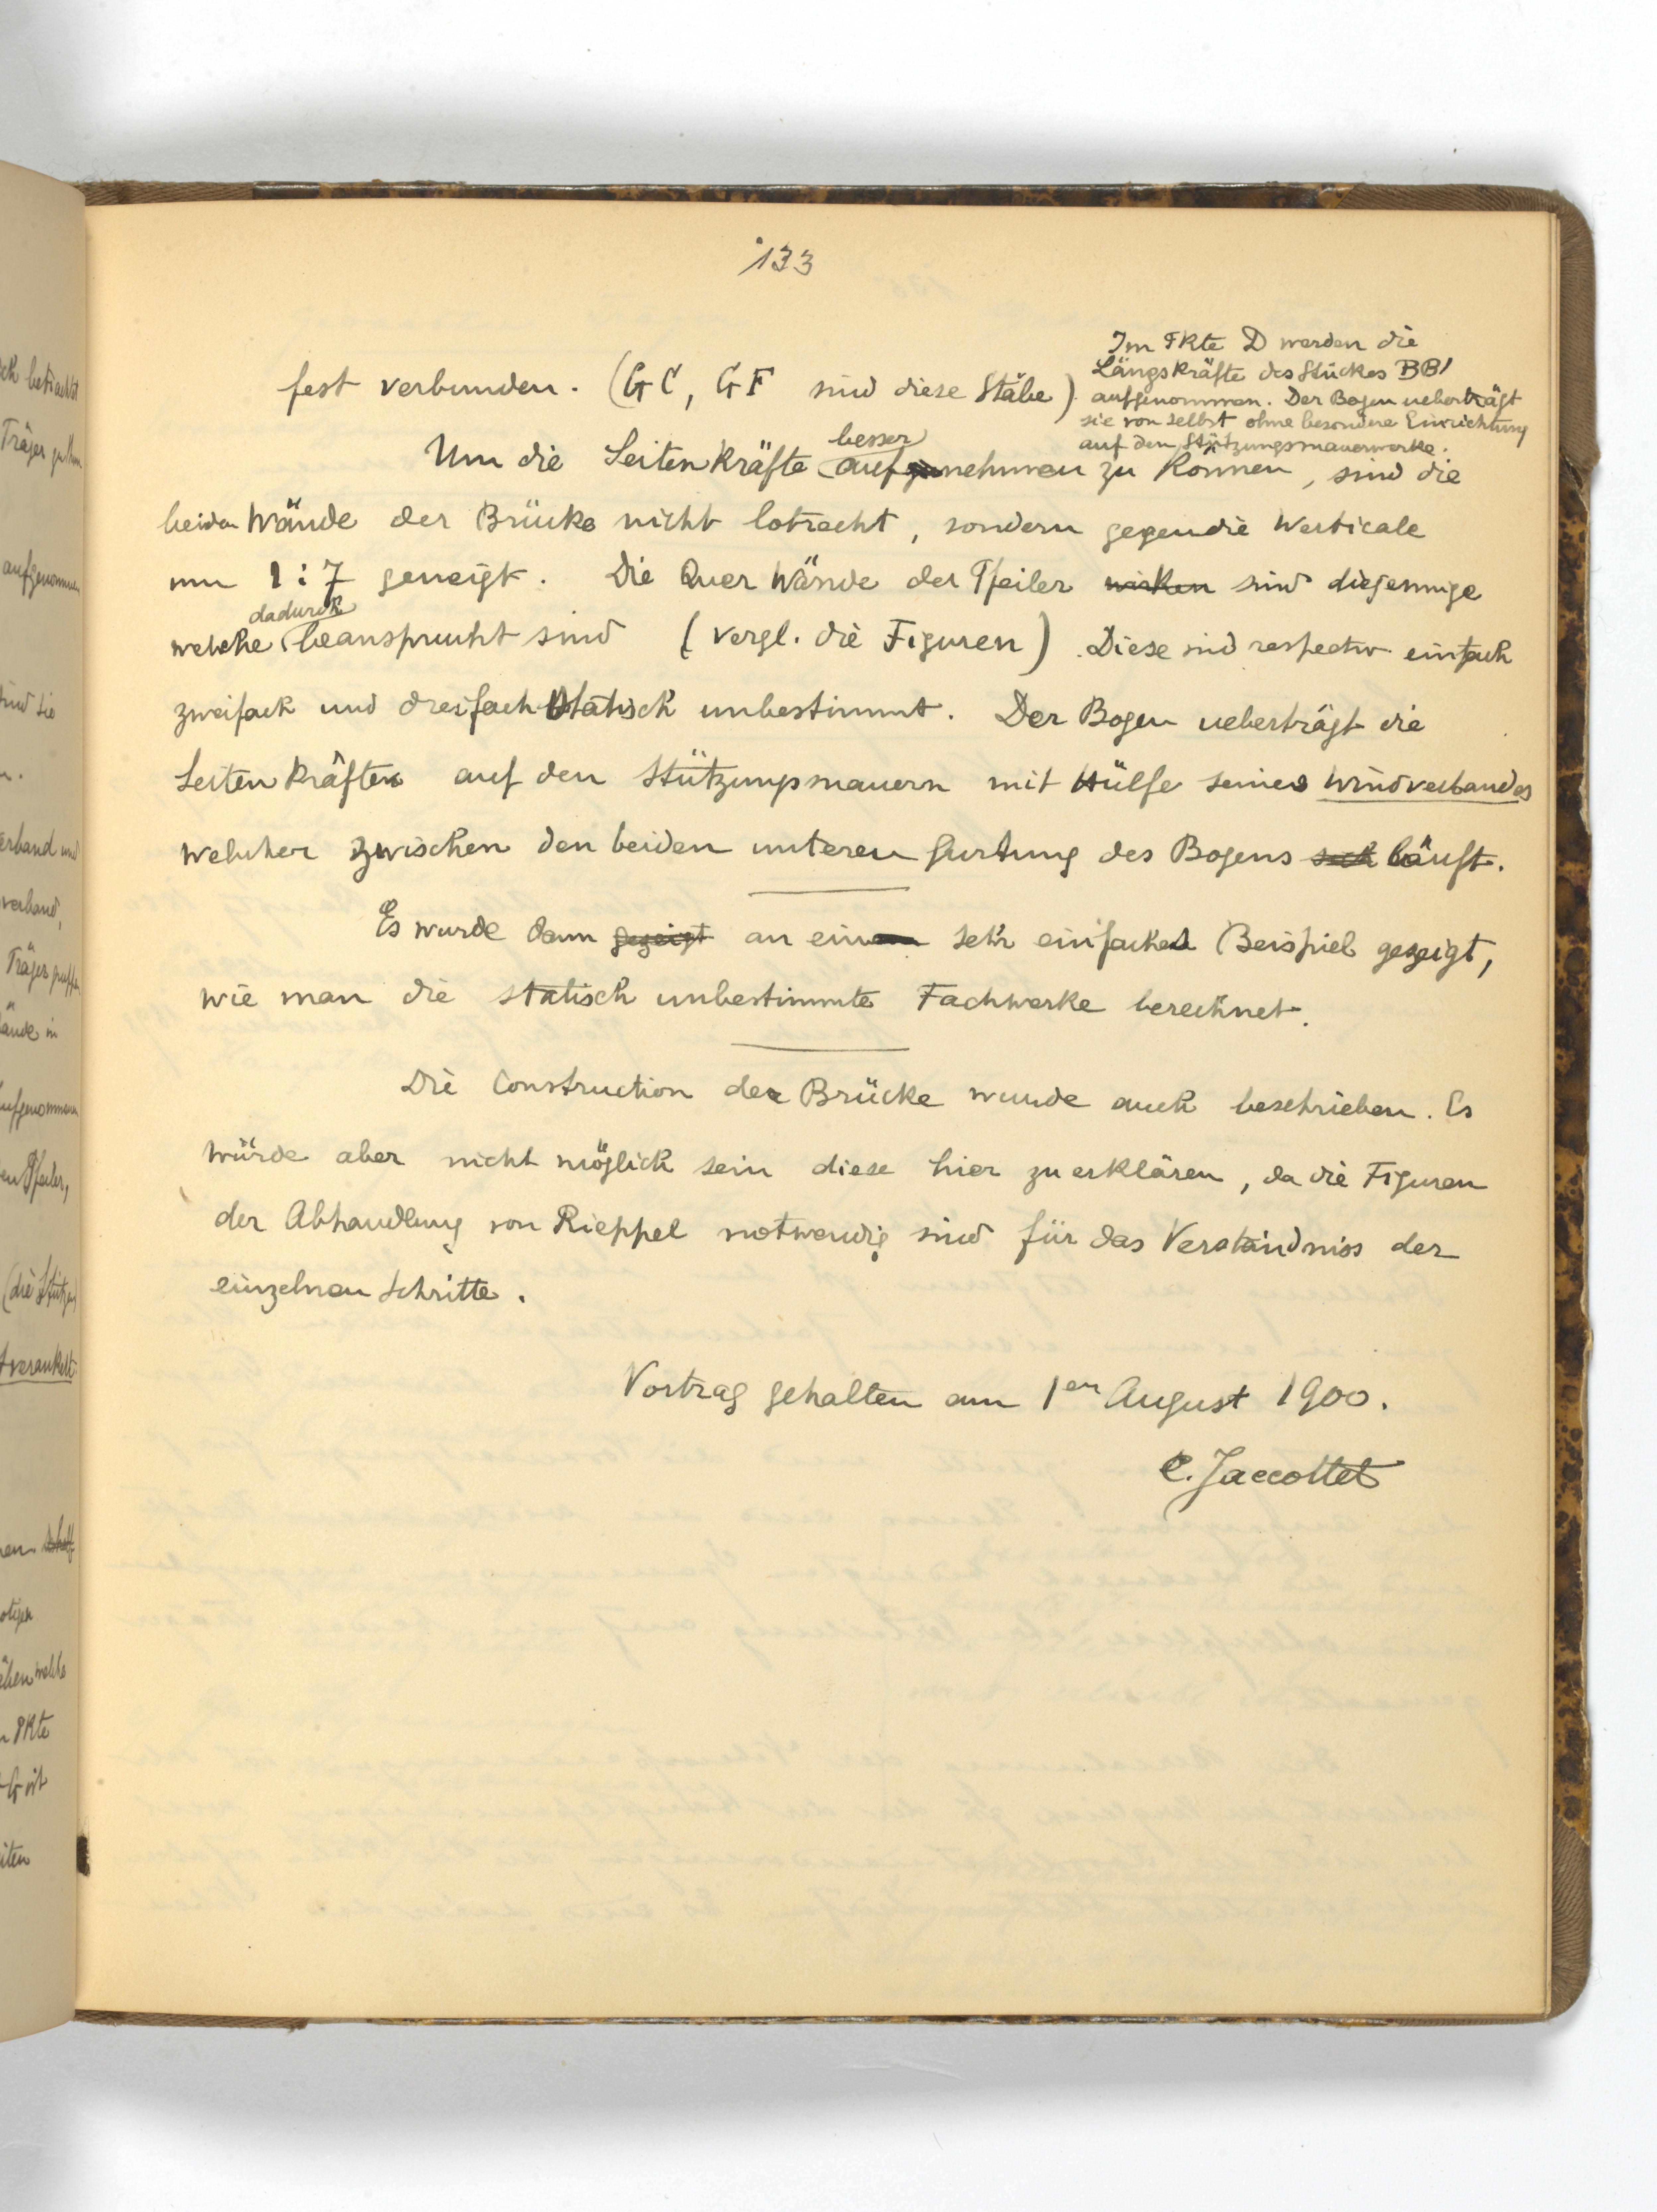 133
fest verbunden. (GC, GF sind diese Stäbe).
Im Pkte D werden die
Längskräfte des Stückes BB'
aufgenommen. Der Bogen ueberträgt
sie von selbst ohne besondere Einrichtung
auf den Stützungsmauerwerke.
besser
Um die Seitenkräfte aufzunehmen zu können, sind die
beiden Wände der Brücke nicht lotrecht, sondern gegen die Verticale
um 1:7 geneigt. Die Quer Wände der Pfeiler wirken sind diejenige
dadurch
welche beansprucht sind (vergl. die Figuren). Diese sind respectiv einfach
zweifach und dreifach statisch unbestimmt. Der Bogen ueberträgt die
Seitenkräften auf den Stützungsmauern mit Hülfe seines Windverbandes
welcher zwischen den beiden unteren Gurtung des Bogens sich läuft.
Es wurde dann gezeigt an ein sehr einfaches Beispiel gezeigt,
wie man die statisch unbestimmte Fachwerke berechnet.
Die Construction der Brücke wurde auch beschrieben. Es
würde aber nicht möglich sein diese hier zu erklären, da die Figuren
der Abhandlung von Rieppel notwendig sind für das Verständniss der
einzelnen Schritte.
Vortrag gehalten am 1en August 1900.
C. Jaccottet